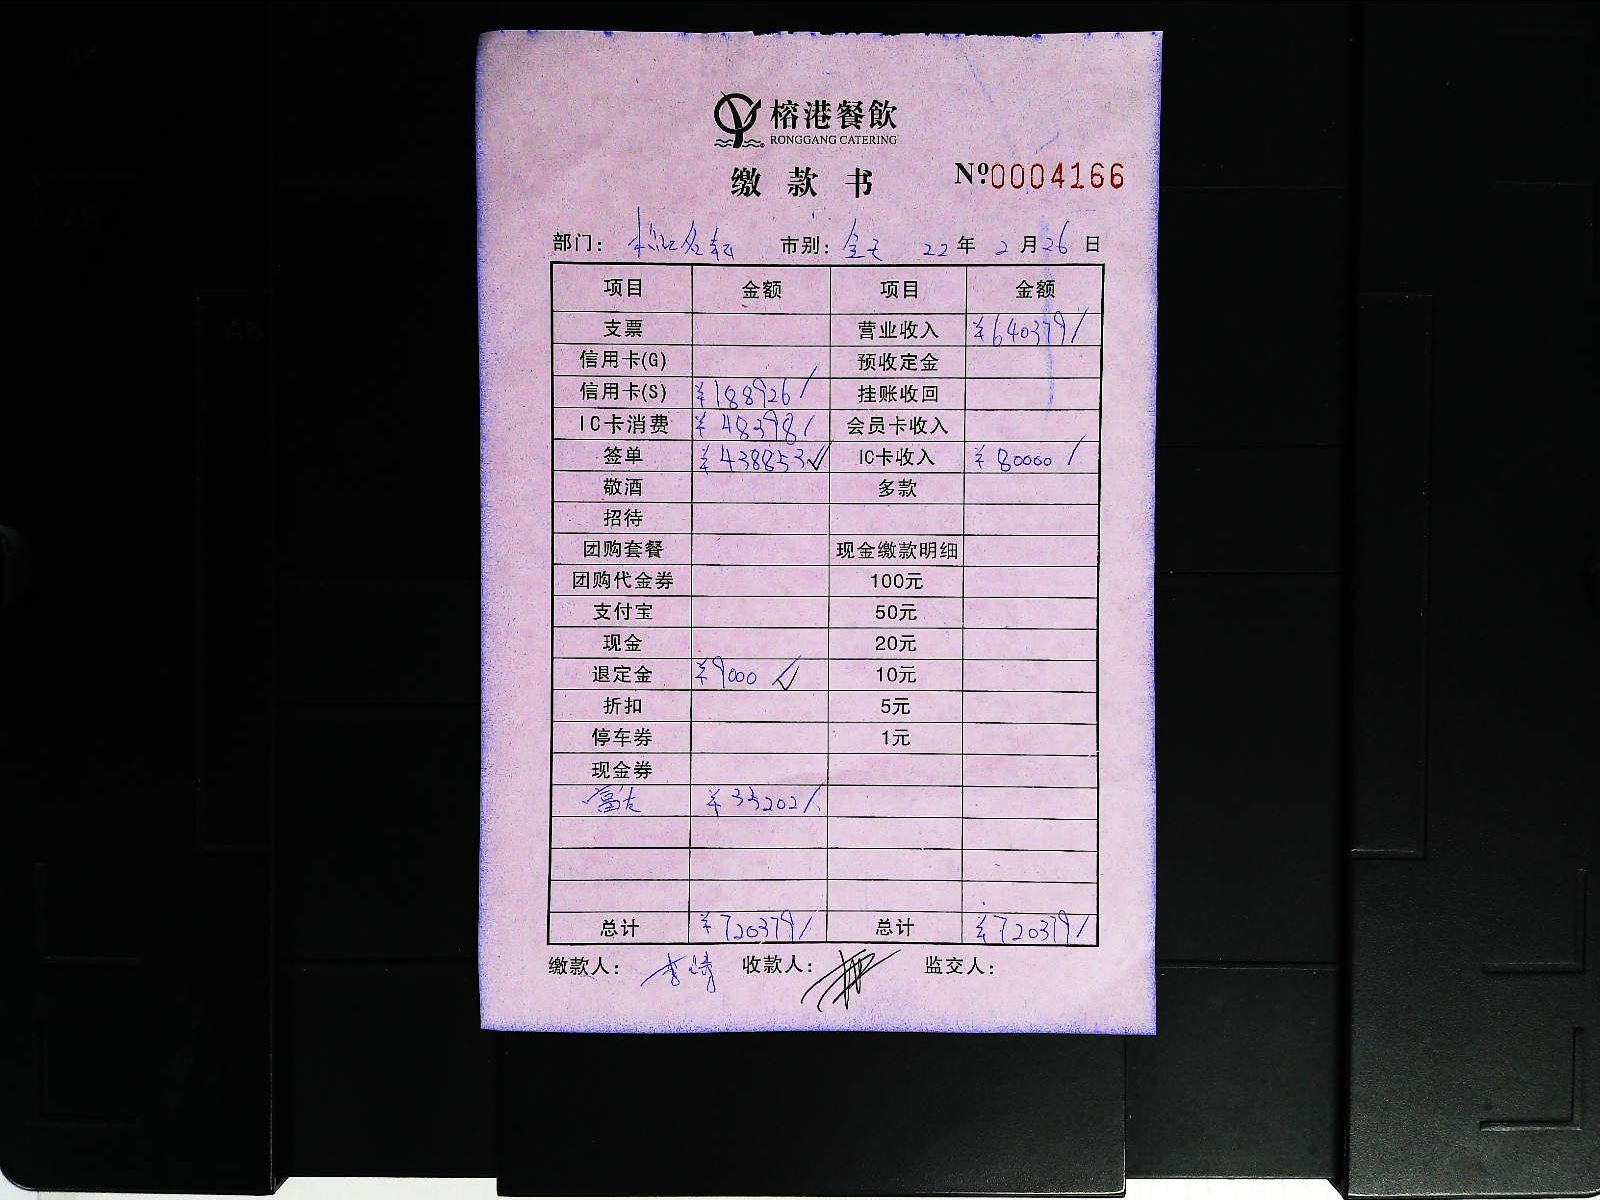 榕港餐飲
RONGGANG CATERING
缴款书 №0004166
部门: 市别: 全天 22年 2月26日
项目 金额 项目 金额
支票 营业收入 ¥640379/
信用卡(G) 预收定金
信用卡(S) ¥188926/ 挂账收回
IC卡消费 ¥48398/ 会员卡收入
签单 ¥438853✓ IC卡收入 ¥80000/
敬酒 多款
招待
团购套餐 现金缴款明细
团购代金券 100元
支付宝 50元
现金 20元
退定金 ¥9000 ✓ 10元
折扣 5元
停车券 1元
现金券
富友 ¥35202/
总计 ¥720379/ 总计 ¥720379/
缴款人: 收款人: 监交人: